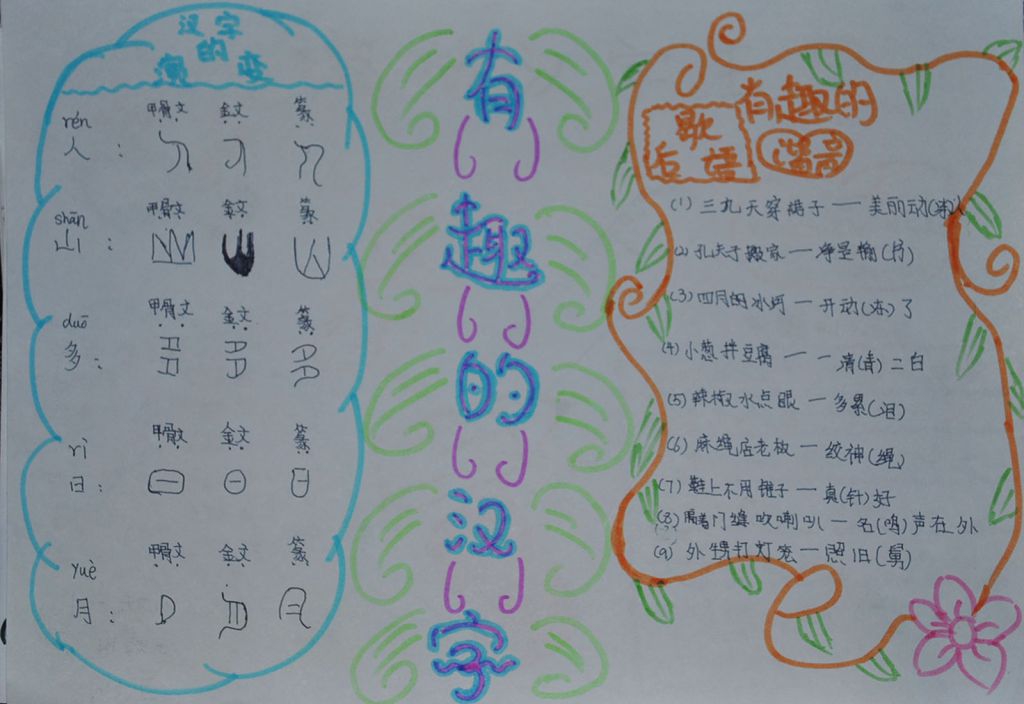 汉字
的
演变
rén 甲骨文 金文 篆
人：
shān 甲骨文 金文 篆
山：
duō 甲骨文 金文 篆
多：
rì 甲骨文 金文 篆
日：
yuè 甲骨文 金文 篆
月：
有
趣
的
汉
字
有趣的
谐音
歇
后语
(1) 三九天穿裙子 — 美丽动(冻)人
(2) 孔夫子搬家 — 净是输(书)
(3) 四月的冰河 — 开动(冻)了
(4) 小葱拌豆腐 — — 清(青)二白
(5) 辣椒水点眼 — 多累(泪)
(6) 麻绳店老板 — 绞神(绳)
(7) 鞋上不用锥子 — 真(针)好
(8) 隔着门缝吹喇叭 — 名(鸣)声在外
(9) 外甥打灯笼 — 照旧(舅)